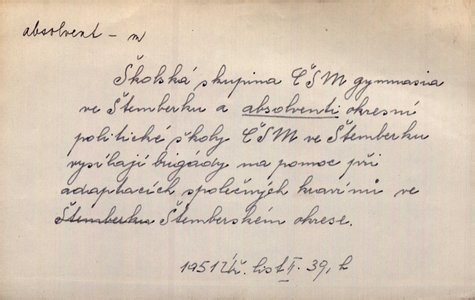 absolvent – m
Školská skupina ČSM gymnasia
ve Štemberku a absolventi okresní
politické školy ČSM ve Štemberku
vysílají brigády na pomoc při
adaptacích společných kravínů ve
Štemberku Štemberském okrese.
1951 list II. 39, 2